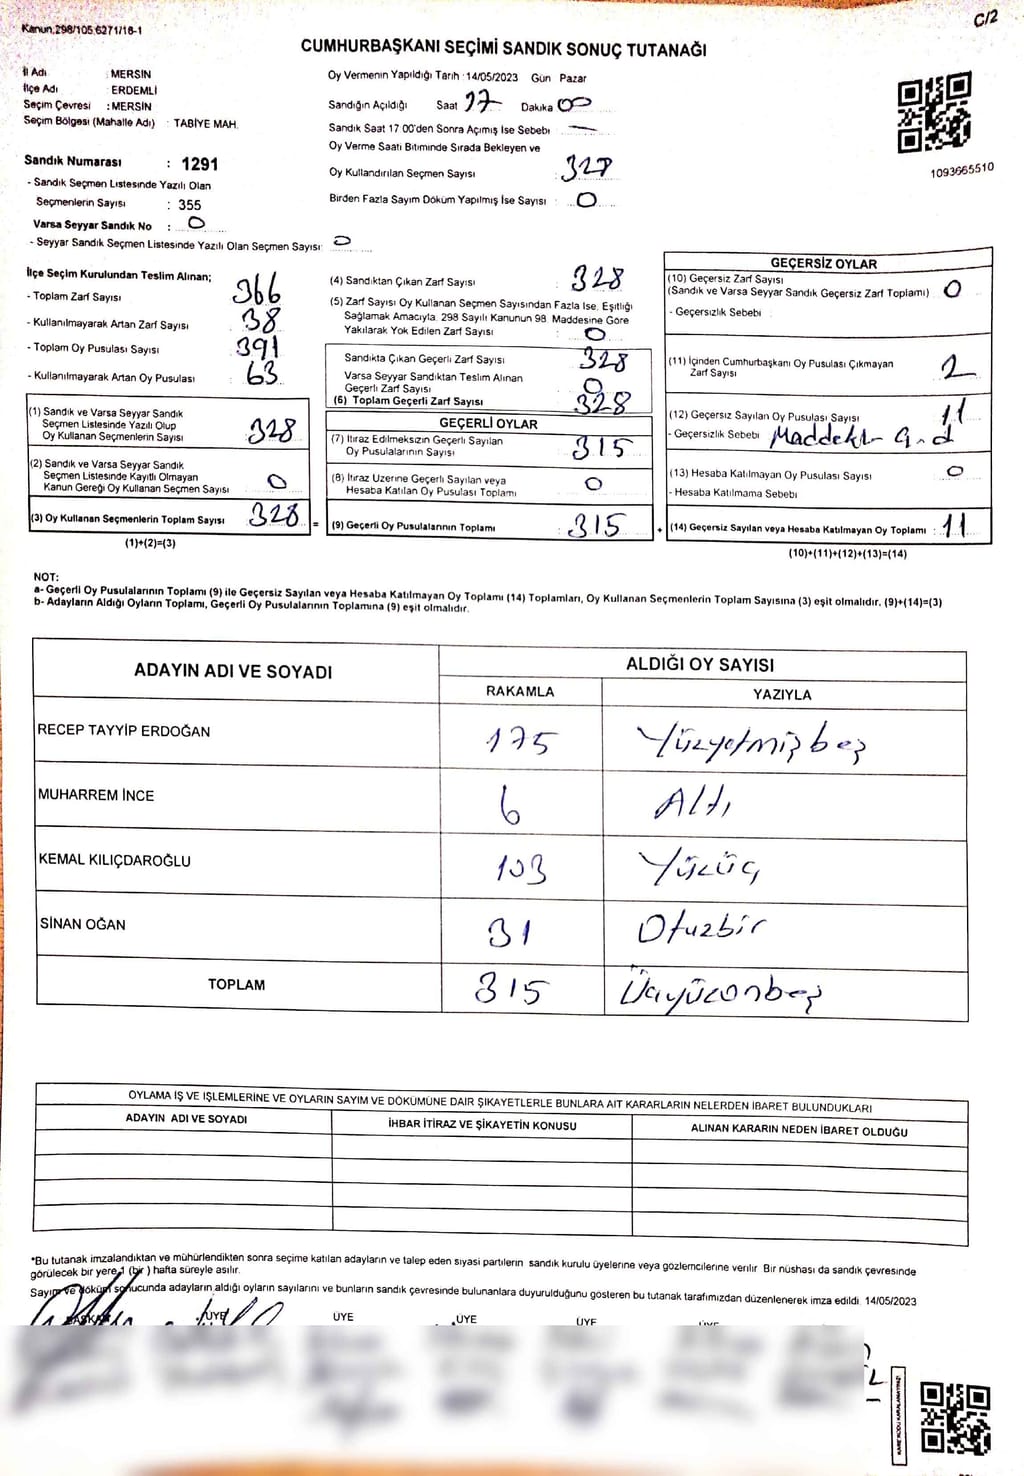 Kanun.298/105,6271/16-1
C/2
CUMHURBAŞKANI SEÇİMİ SANDIK SONUÇ TUTANAĞI
İl Adı : MERSİN
İlçe Adı : ERDEMLİ
Seçim Çevresi : MERSİN
Seçim Bölgesi (Mahalle Adı) : TABİYE MAH.
Sandık Numarası : 1291
- Sandık Seçmen Listesinde Yazılı Olan
Seçmenlerin Sayısı : 355
Varsa Seyyar Sandık No : 0
- Seyyar Sandık Seçmen Listesinde Yazılı Olan Seçmen Sayısı: 0
Oy Vermenin Yapıldığı Tarih : 14/05/2023 Gün Pazar
Sandığın Açıldığı Saat 17 Dakika 00
Sandık Saat 17 00'den Sonra Açımış İse Sebebi : —
Oy Verme Saati Bitiminde Sırada Bekleyen ve
Oy Kullandırılan Seçmen Sayısı : 327
Birden Fazla Sayım Döküm Yapılmış İse Sayısı : 0
1093665510
İlçe Seçim Kurulundan Teslim Alınan;
- Toplam Zarf Sayısı : 366
- Kullanılmayarak Artan Zarf Sayısı : 38
- Toplam Oy Pusulası Sayısı : 391
- Kullanılmayarak Artan Oy Pusulası : 63
(1) Sandık ve Varsa Seyyar Sandık
Seçmen Listesinde Yazılı Olup
Oy Kullanan Seçmenlerin Sayısı : 328
(2) Sandık ve Varsa Seyyar Sandık
Seçmen Listesinde Kayıtlı Olmayan
Kanun Gereği Oy Kullanan Seçmen Sayısı : 0
(3) Oy Kullanan Seçmenlerin Toplam Sayısı : 328 =
(1)+(2)=(3)
(4) Sandıktan Çıkan Zarf Sayısı : 328
(5) Zarf Sayısı Oy Kullanan Seçmen Sayısından Fazla İse, Eşitliği
Sağlamak Amacıyla, 298 Sayılı Kanunun 98. Maddesine Göre
Yakılarak Yok Edilen Zarf Sayısı : 0
Sandıkta Çıkan Geçerli Zarf Sayısı : 328
Varsa Seyyar Sandıktan Teslim Alınan
Geçerli Zarf Sayısı : 0
(6) Toplam Geçerli Zarf Sayısı : 328
GEÇERLİ OYLAR
(7) İtiraz Edilmeksizin Geçerli Sayılan
Oy Pusulalarının Sayısı : 315
(8) İtiraz Üzerine Geçerli Sayılan veya
Hesaba Katılan Oy Pusulası Toplamı : 0
(9) Geçerli Oy Pusulalarının Toplamı : 315 +
GEÇERSİZ OYLAR
(10) Geçersiz Zarf Sayısı
(Sandık ve Varsa Seyyar Sandık Geçersiz Zarf Toplamı) : 0
- Geçersizlik Sebebi :
(11) İçinden Cumhurbaşkanı Oy Pusulası Çıkmayan
Zarf Sayısı : 2
(12) Geçersiz Sayılan Oy Pusulası Sayısı : 11
- Geçersizlik Sebebi :
(13) Hesaba Katılmayan Oy Pusulası Sayısı : 0
- Hesaba Katılmama Sebebi :
(14) Geçersiz Sayılan veya Hesaba Katılmayan Oy Toplamı : 11
(10)+(11)+(12)+(13)=(14)
NOT:
a- Geçerli Oy Pusulalarının Toplamı (9) ile Geçersiz Sayılan veya Hesaba Katılmayan Oy Toplamı (14) Toplamları, Oy Kullanan Seçmenlerin Toplam Sayısına (3) eşit olmalıdır. (9)+(14)=(3)
b- Adayların Aldığı Oyların Toplamı, Geçerli Oy Pusulalarının Toplamına (9) eşit olmalıdır.
ADAYIN ADI VE SOYADI
ALDIĞI OY SAYISI
RAKAMLA YAZIYLA
RECEP TAYYİP ERDOĞAN 175 Yüzyetmişbeş
MUHARREM İNCE 6 Altı
KEMAL KILIÇDAROĞLU 103 Yüzüç
SİNAN OĞAN 31 Otuzbir
TOPLAM 315 Üçyüzonbeş
OYLAMA İŞ VE İŞLEMLERİNE VE OYLARIN SAYIM VE DÖKÜMÜNE DAİR ŞİKAYETLERLE BUNLARA AİT KARARLARIN NELERDEN İBARET BULUNDUKLARI
ADAYIN ADI VE SOYADI İHBAR İTİRAZ VE ŞİKAYETİN KONUSU ALINAN KARARIN NEDEN İBARET OLDUĞU
*Bu tutanak imzalandıktan ve mühürlendikten sonra seçime katılan adayların ve talep eden siyasi partilerin sandık kurulu üyelerine veya gözlemcilerine verilir. Bir nüshası da sandık çevresinde
görülecek bir yere 1 (bir ) hafta süreyle asılır.
Sayım ve döküm sonucunda adayların aldığı oyların sayılarını ve bunların sandık çevresinde bulunanlara duyurulduğunu gösteren bu tutanak tarafımızdan düzenlenerek imza edildi. 14/05/2023
BAŞKAN ÜYE ÜYE ÜYE ÜYE ÜYE